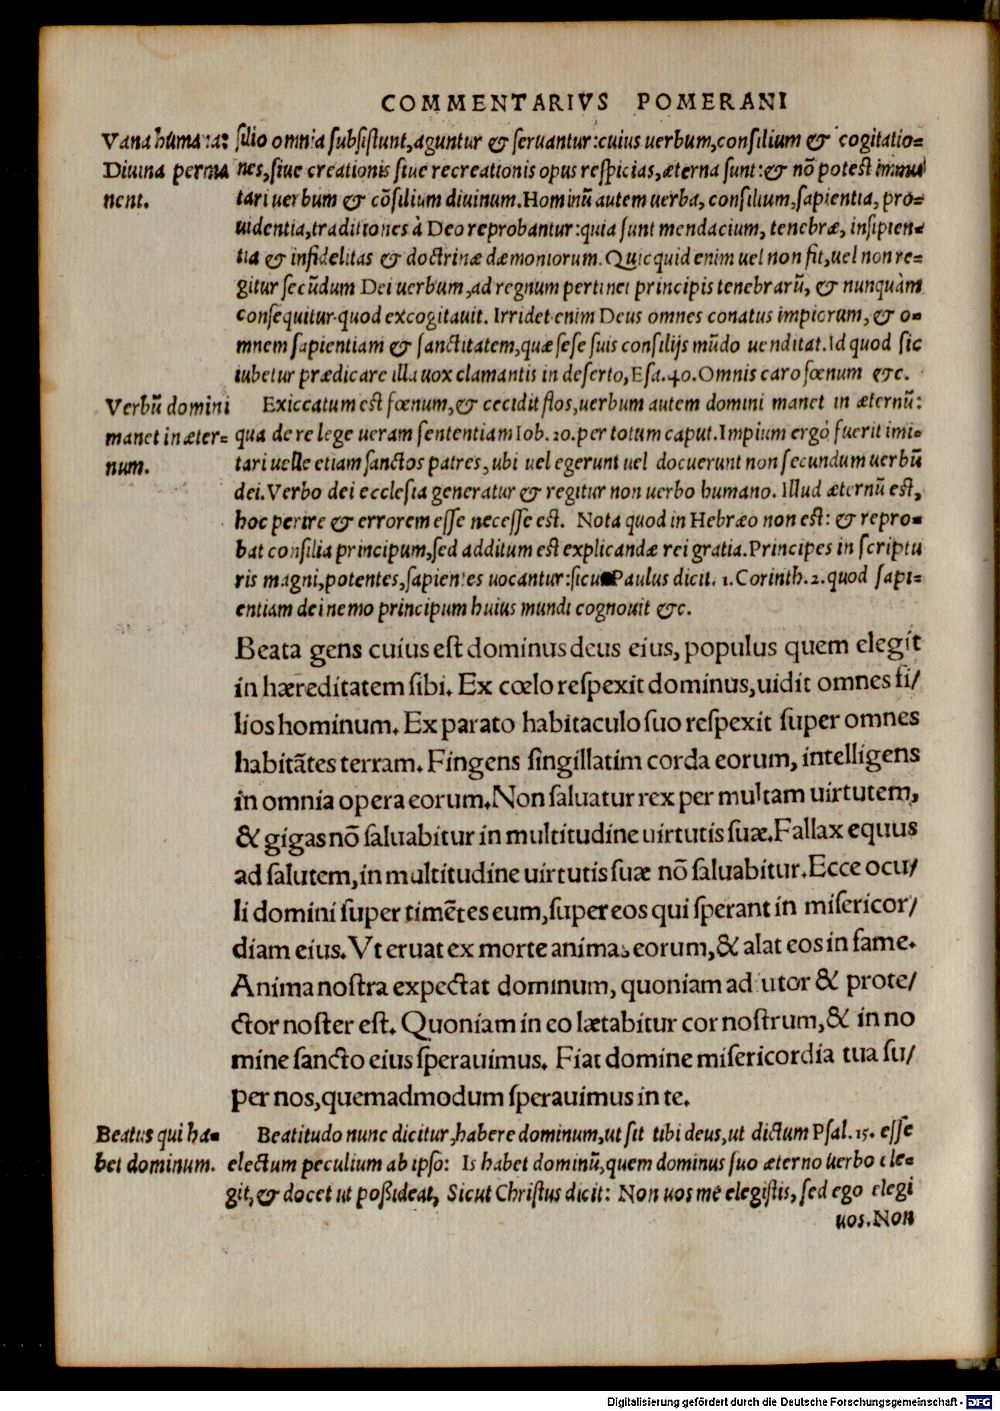 COMMENTARIVS POMERANI
Vana humana:
Diuina perma
nent.
silio omnia subsistunt, aguntur & seruantur: cuius uerbum, consilium & cogitatio=
nes, siue creationis siue recreationis opus respicias, æterna sunt: & nō potest immu
tari uerbum & cōsilium diuinum. Hominū autem uerba, consilium, sapientia, pro=
uidentia, traditiones à Deo reprobantur: quia sunt mendacium, tenebræ, insipien=
tia & infidelitas & doctrinæ dæmoniorum. Quicquid enim uel non fit, uel non re=
gitur secūdum Dei uerbum, ad regnum pertinet principis tenebrarū, & nunquàm
consequitur quod excogitauit. Irridet enim Deus omnes conatus impiorum, & o=
mnem sapientiam & sanctitatem, quæ sese suis consilijs mūdo uenditat. Id quod sic
iubetur prædicare illa uox clamantis in deserto, Esa. 40. Omnis caro fœnum &c.
Verbū domini
manet in æter=
num.
Exiccatum est fœnum, & cecidit flos, uerbum autem domini manet in æternū:
qua de re lege ueram sententiam Iob. 20. per totum caput. Impium ergò fuerit imi=
tari uelle etiam sanctos patres, ubi uel egerunt uel docuerunt non secundum uerbū
dei. Verbo dei ecclesia generatur & regitur non uerbo humano. Illud æternū est,
hoc perire & errorem esse necesse est. Nota quod in Hebræo non est: & repro=
bat consilia principum, sed additum est explicandæ rei gratia. Principes in scriptu
ris magni, potentes, sapientes uocantur: sicut Paulus dicit. 1. Corinth. 2. quod sapi=
entiam dei nemo principum huius mundi cognouit &c.
Beata gens cuius est dominus deus eius, populus quem elegit
in hæreditatem sibi. Ex cœlo respexit dominus, uidit omnes fi/
lios hominum. Ex parato habitaculo suo respexit super omnes
habitātes terram. Fingens singillatim corda eorum, intelligens
in omnia opera eorum. Non saluatur rex per multam uirtutem,
& gigas nō saluabitur in multitudine uirtutis suæ. Fallax equus
ad salutem, in multitudine uirtutis suæ nō saluabitur. Ecce ocu/
li domini super timētes eum, super eos qui sperant in misericor/
diam eius. Vt eruat ex morte animas eorum, & alat eos in fame.
Anima nostra expectat dominum, quoniam adiutor & prote/
ctor noster est. Quoniam in eo lætabitur cor nostrum, & in no
mine sancto eius sperauimus. Fiat domine misericordia tua su/
per nos, quemadmodum sperauimus in te.
Beatus qui ha=
bet dominum.
Beatitudo nunc dicitur, habere dominum, ut sit tibi deus, ut dictum Psal. 15. esse
electum peculium ab ipso: Is habet dominū, quem dominus suo æterno uerbo ele=
git, & docet ut possideat, Sicut Christus dicit: Non uos me elegistis, sed ego elegi
uos. Non
Digitalisierung gefördert durch die Deutsche Forschungsgemeinschaft - DFG